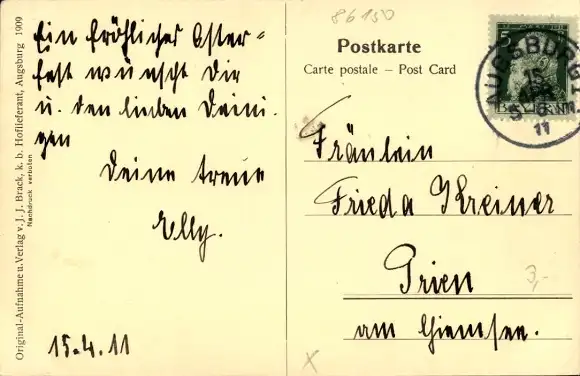 Original-Aufnahme u. Verlag v. J. J. Brack, k. b. Hoflieferant, Augsburg 1909
Nachdruck verboten
Ein fröhliches Oster=
fest wünscht Dir
u. den lieben Deini-
gen
Deine treue
Elly.
15.4.11
86150
Postkarte
Carte postale – Post Card
5
AUGSBURG 1
15
5 6
11
Fräulein
Frieda Kreiner
Prien
am Chiemsee.
3,-